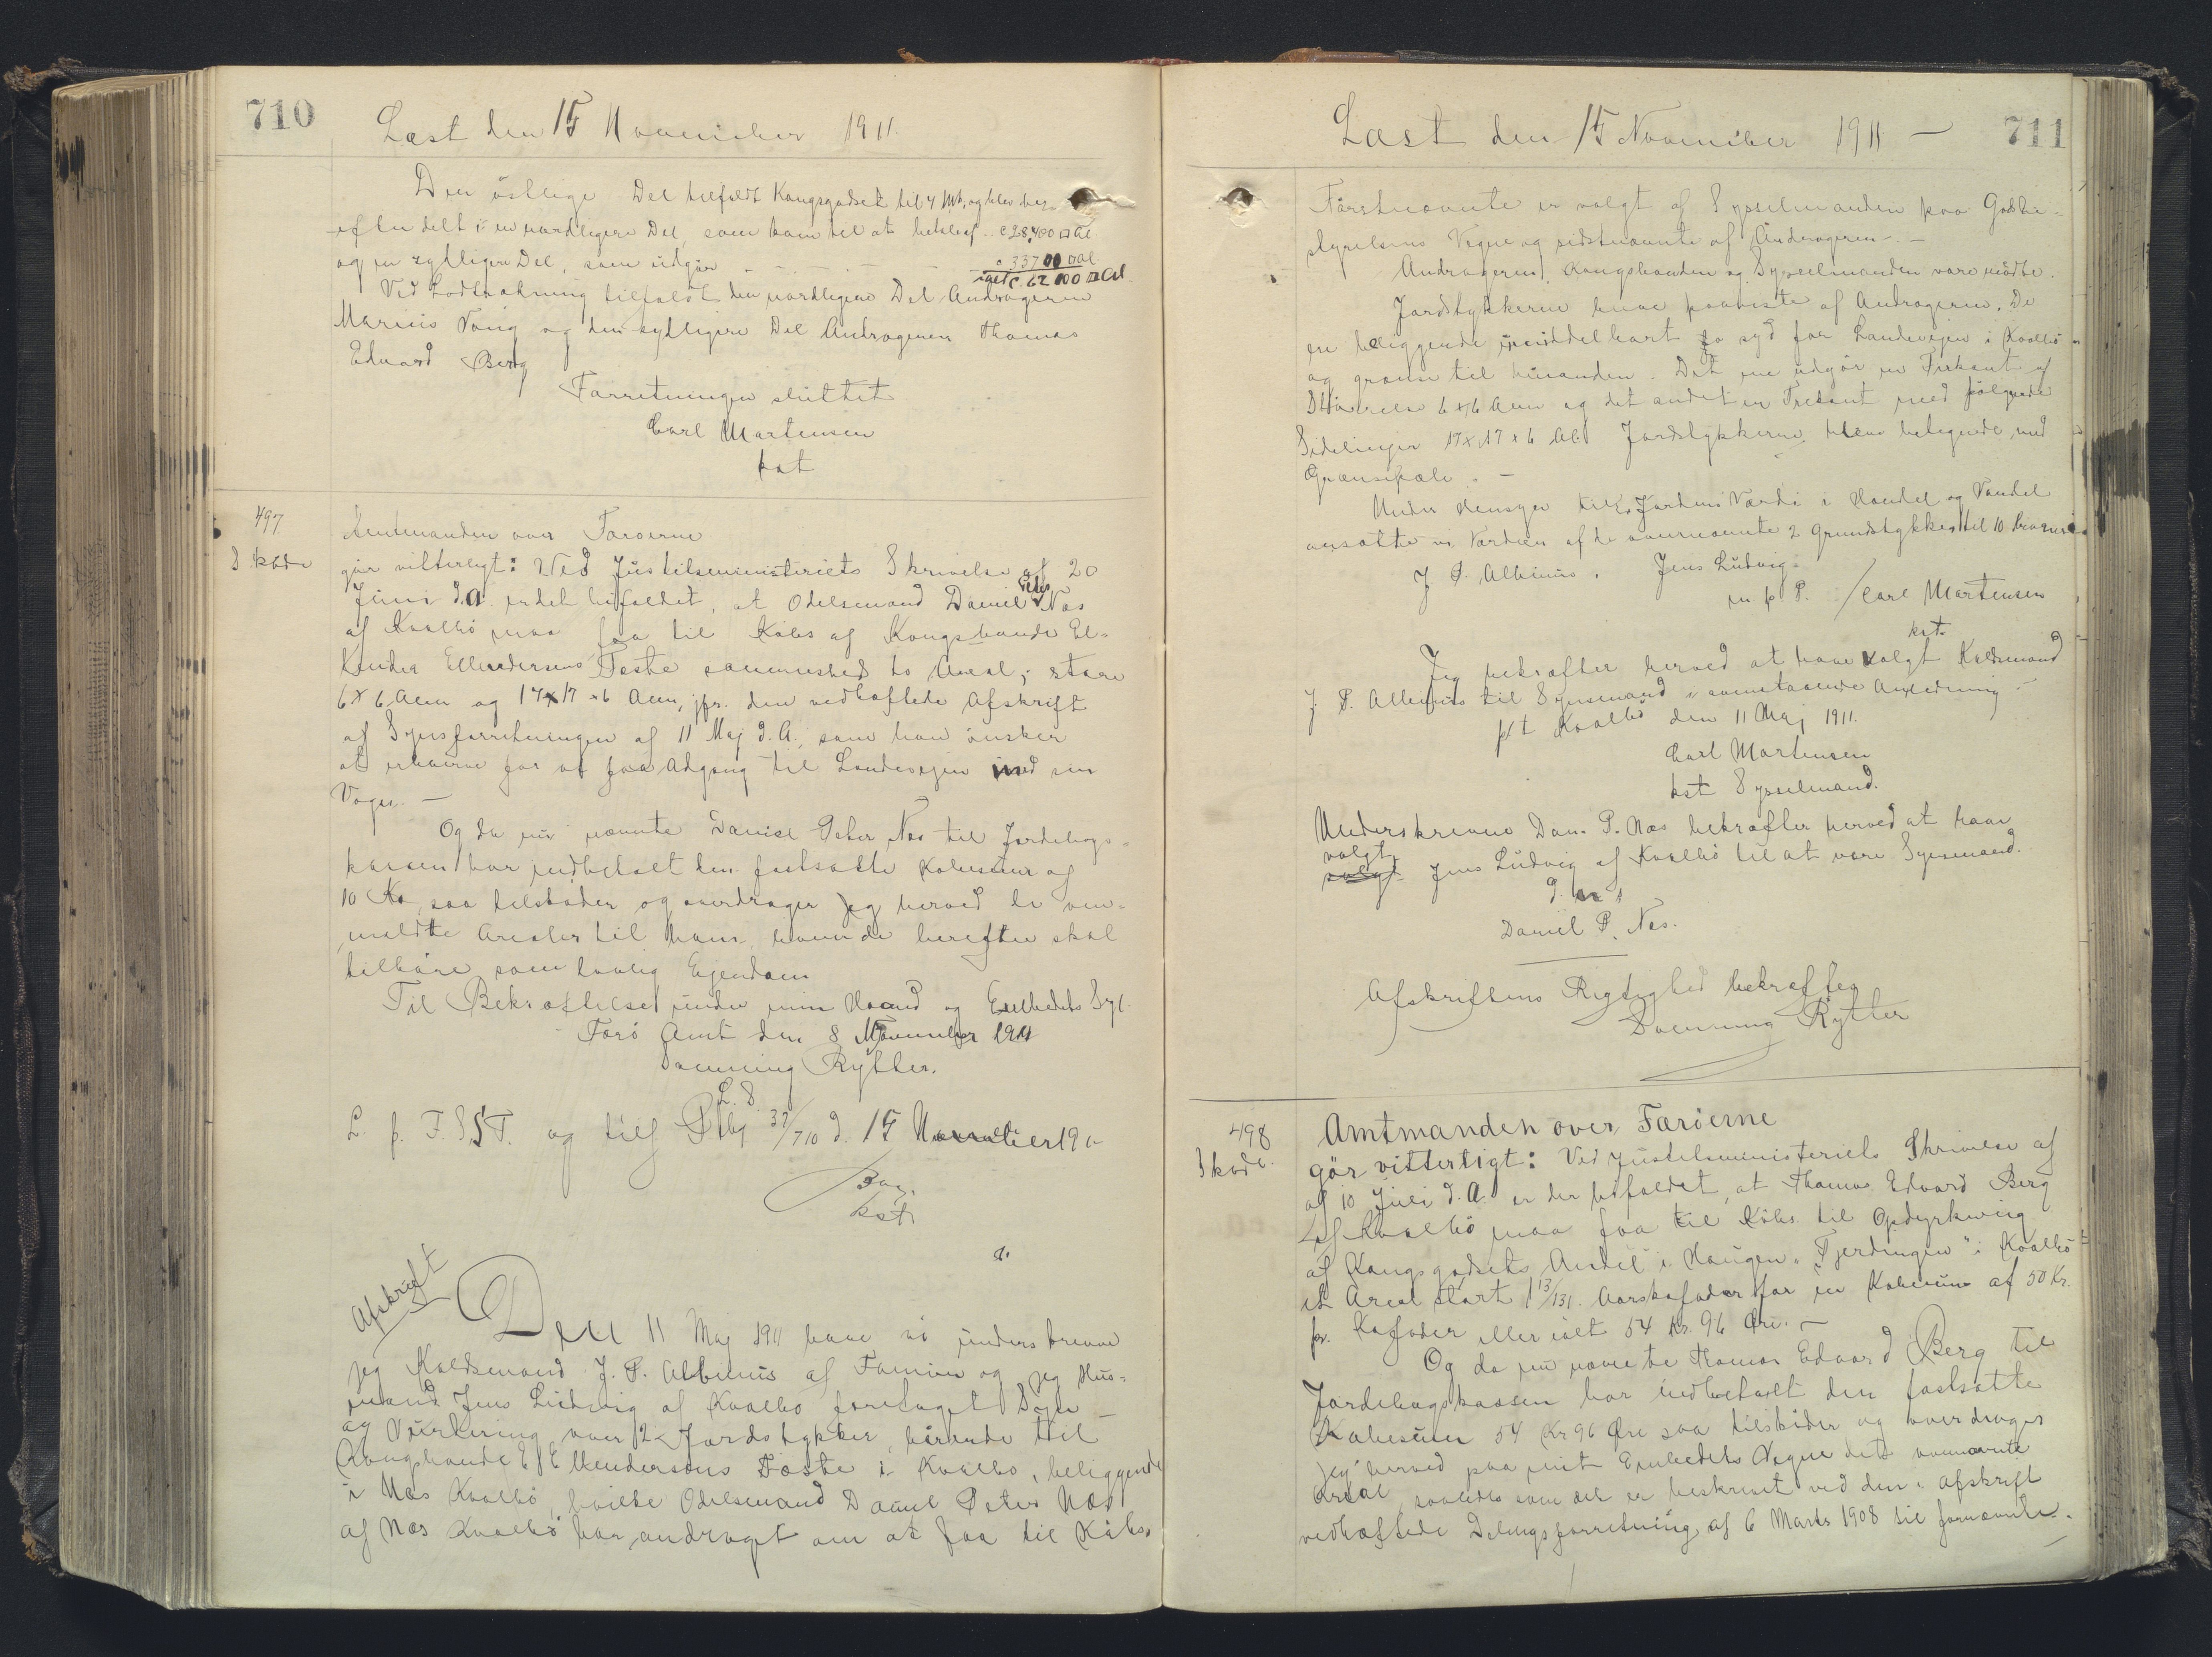 710
Læst den 15 November 1911.
Den östlige Del tilfaldt Kongsgodset til 4 Mk, og blev her
efter delt i en nordligere Del, som kom til at bestaa af c 28,400 □ Al
og en sydligere Del, som udgör c 33700 □ Al.
ialt c. 62100 □ Al
Ved Lodtrækning tilfaldt den nordligere Del Andrageren
Marius Vang og den sydligere Del Andrageren Thomas
Edvard Berg
Forretningen sluttet
Carl Mortensen
kst
497
Skøde
Amtmanden over Færøerne
gör vitterligt: Ved Justitsministeriets Skrivelse af 20
Juni d.A. er det bifaldet, at Odelsmand Daniel Peter Næs
af Kvalbö maa faa til Köbs af Kongsbonde El-
kinder Ellendersens Fæste sammesteds to Areal, store
6 x 6 Alen og 17 x 17 x 6 Alen, jfr. den vedhæftede Afskrift
af Synsforretningen af 11 Maj d.A., som han önsker
at erhverve for at faa Adgang til Landevejen med sin
Vogn. —
Og da nu nævnte Daniel Peter Næs til Jordebogs-
kassen har indbetalt den fastsatte Købesum af
10 Kr, saa tilskøder og overdrager jeg herved de om-
meldte Arealer til ham, hvem de herefter skal
tilhöre som lovlig Ejendom
Til Bekræftelse under min Haand og Embedets Segl.
Færö Amt den 8 November 1911
Dænning Rytter.
L. S.
L. p. F. S S T. og tilf Ptbg 37/710 d. 15 November 1911
Bay.
kst.
Afskrift
Den 11 Maj 1911 have vi underskrevne
jeg Kaldsmand J. P. Albinus af Famien og jeg Hus-
mand Jens Ludvig af Kvalbø foretaget Syn
og Vurdering over 2 Jordstykker, hörende til
Kongsbonde E. Ellendersens Fæste i Kvalbø, beliggende
i Næs Kvalbö, hvilke Odelsmand Daniel Peter Næs
af Næs Kvalbö har andraget om at faa til Köbs.
Læst den 15 November 1911 —
711
Förstnævnte er valgt af Sysselmanden paa Godsbe-
styrelsens Vegne og sidstnævnte af Andrageren. —
Andrageren, Kongsbonden og Sysselmanden vare mödte.
Jordstykkerne bleve paaviste af Andrageren. De
ere beliggende umiddelbart syd for Landevejen i Kvalbö
og grænse til hinanden. Det ene udgör en Firkant af
Störrelse 6 x 6 Alen og det andet en Trekant med fölgende
Sidelinjer 17 x 17 x 6 Al. Jordstykkerne bleve betegnede med
Grænsepæle. —
Under Hensyn til Jordens Værdi i Handel og Vandel
ansatte vi Værdien af de ovennævnte 2 Grundstykker til 10 Kroner.
J. P. Albinus. Jens Ludvig
m p P. / Carl Mortensen
kst.
Jeg bekræfter herved at have valgt Kaldsmand
J. P. Albinus til Synsmand i ovenstaaende Anledning —
p t Kvalbö den 11 Maj 1911.
Carl Mortensen
kst Sysselmand.
Underskrevne Dan. P. Næs bekræfter herved at have
valgt
Jens Ludvig af Kvalbö til at være Synsmand.
d. u. s
Daniel P. Næs.
Afskriftens Rigtighed bekræftes
Dænning Rytter
498
Skøde.
Amtmanden over Færöerne
gör vitterligt: Ved Justitsministeriets Skrivelse af
af 10 Juli d.A. er der bifaldet, at Thomas Edvard Berg
af Kvalbö maa faa til Köbs til Opdyrkning
af Kongsgodsets Andel i Haugen "Fjerdingen" i Kvalbö
et Areal stort 1 13/131 Aarskofoder for en Købesum af 50 Kr.
pr. Kofoder eller ialt 54 Kr. 96 Öre. —
Og da nu nævnte Thomas Edvard Berg til
Jordebogskassen har indbetalt den fastsatte
Købesum 54 Kr 96 Öre saa tilsköder og overdrager
jeg herved paa mit Embedets Vegne det ovennævnte
Areal, saaledes som det er beskrevet ved den i Afskrift
vedhæftede Delingsforretning af 6 Marts 1908 til fornævnte.